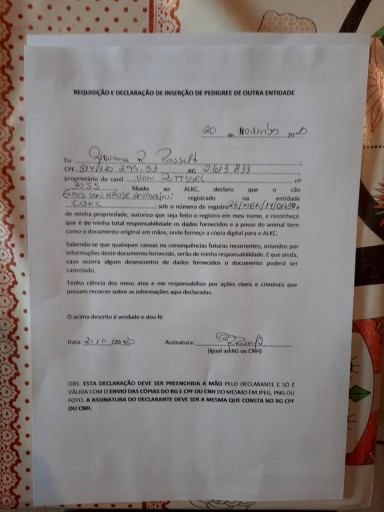 REQUISIÇÃO E DECLARAÇÃO DE INSERÇÃO DE PEDIGREE DE OUTRA ENTIDADE
20 de Novembro 2020
Eu Giovana R
CPF RG 2.613.833
proprietário do canil VON nº
3055 filiado ao ALKC, declaro que o cão
registrado na entidade
sob o número de registro
de minha propriedade, autorizo que seja feito o registro em meu nome, e reconheço
que é de minha total responsabilidade os dados fornecidos e a posse do animal bem
como o documento original em mãos, onde forneço a cópia digital para o ALKC.
Sabendo-se que quaisquer causas ou consequências futuras recorrentes, oriundos por
informações deste documento fornecido, serão de minha responsabilidade. E que ainda,
caso ocorra algum desencontro de dados fornecidos o documento poderá ser
cancelado.
Tenho ciência dos meus atos e me responsabilizo por ações cíveis e criminais que
possam recorrer sobre as informações aqui declaradas.
O acima descrito é verdade e dou fé
Data: Assinatura:
(Igual ao RG ou CNH)
OBS: ESTA DECLARAÇÃO DEVE SER PREENCHIDA A MÃO PELO DECLARANTE E SÓ É
VÁLIDA COM O ENVIO DAS CÓPIAS DO RG E CPF OU CNH DO MESMO EM JPEG, PNG OU
FOTO. A ASSINATURA DO DECLARANTE DEVE SER A MESMA QUE CONSTA NO RG CPF
OU CNH.